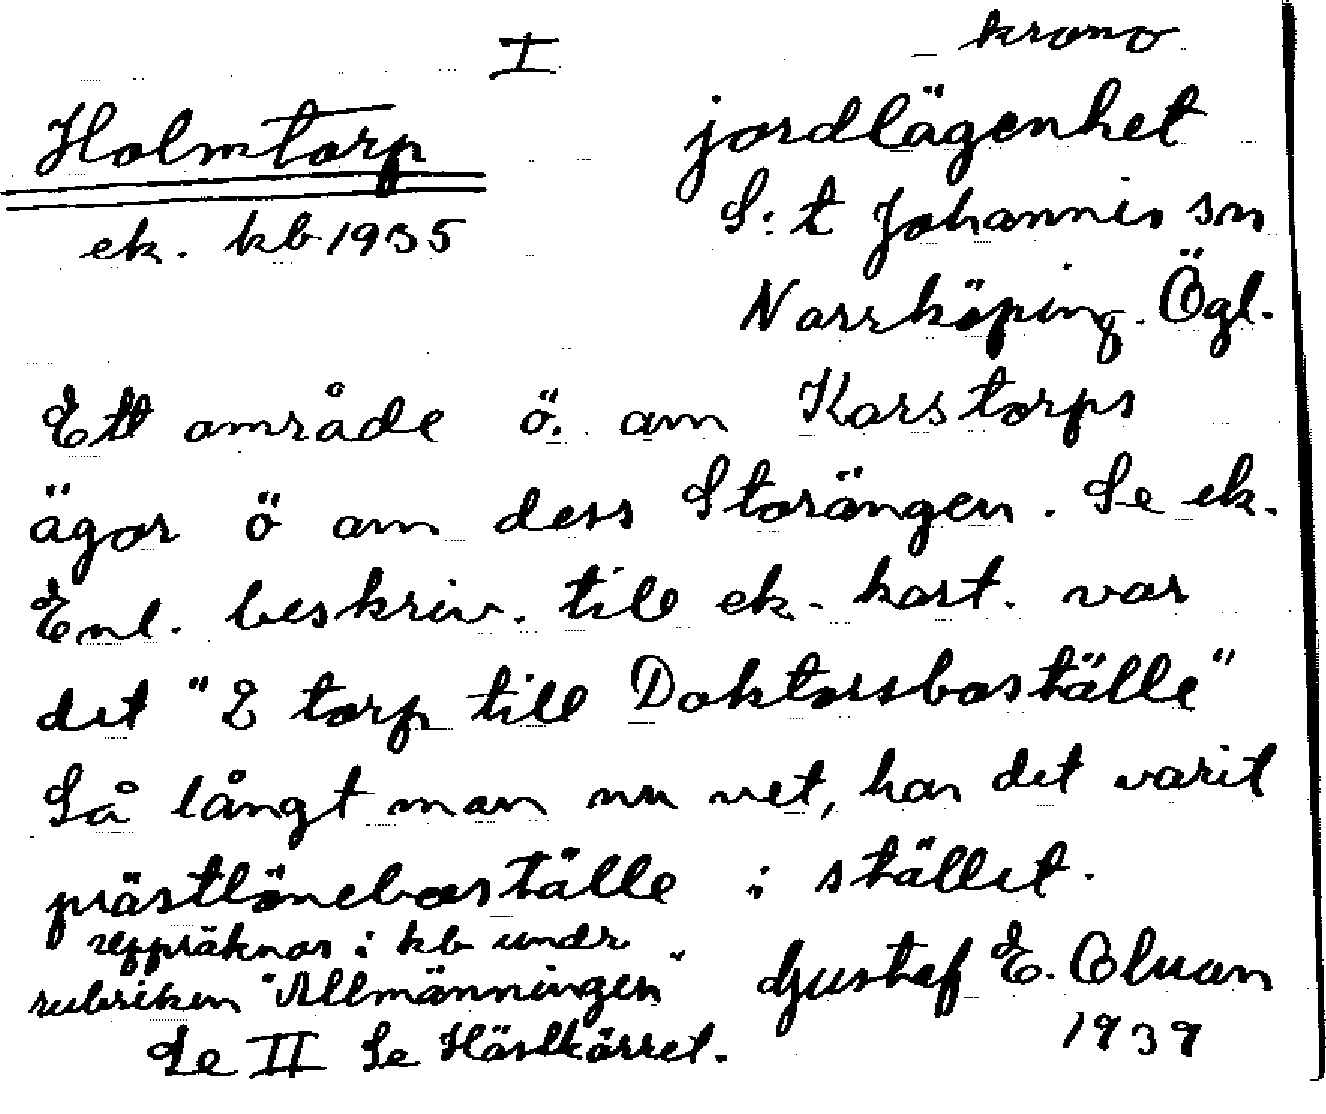 I
krono
Holmtorp
jordlägenhet
ek. kb 1935
S:t Johannis sn
Norrköping. Ögl.
Ett område ö. om Korstorps
ägor ö om dess Storängen. Se ek.
Enl. beskriv. till ek. kart. var
det "2 torp till Doktorsboställe"
Så långt man nu vet, har det varit
prästlöneboställe i stället.
uppräknas i kb undr
rubriken "Allmänningen"
Gustaf E. Oluan
Se II Se Hästkärret.
1939